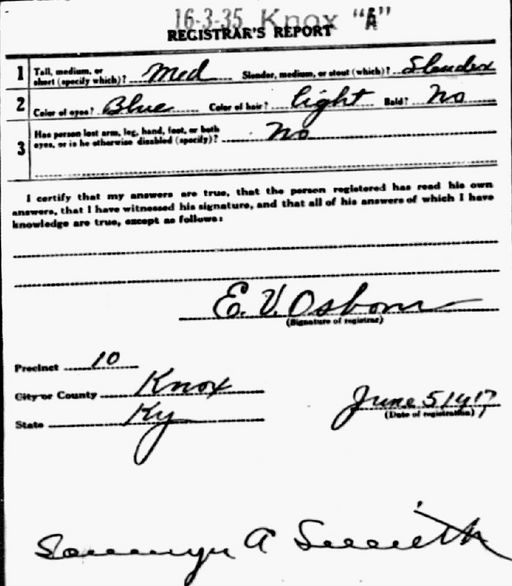 16-3-35 Knox "A"
REGISTRAR'S REPORT
1 Tall, medium, or short (specify which)? Med Slender, medium, or stout (which)? Slender
2 Color of eyes? Blue Color of hair? light Bald? No
3 Has person lost arm, leg, hand, foot, or both eyes, or is he otherwise disabled (specify)? No
I certify that my answers are true, that the person registered has read his own
answers, that I have witnessed his signature, and that all of his answers of which I have
knowledge are true, except as follows:
E. V. Osborn
(Signature of registrar)
Precinct 10
City or County Knox
State Ky
June 5 1917
(Date of registration)
A